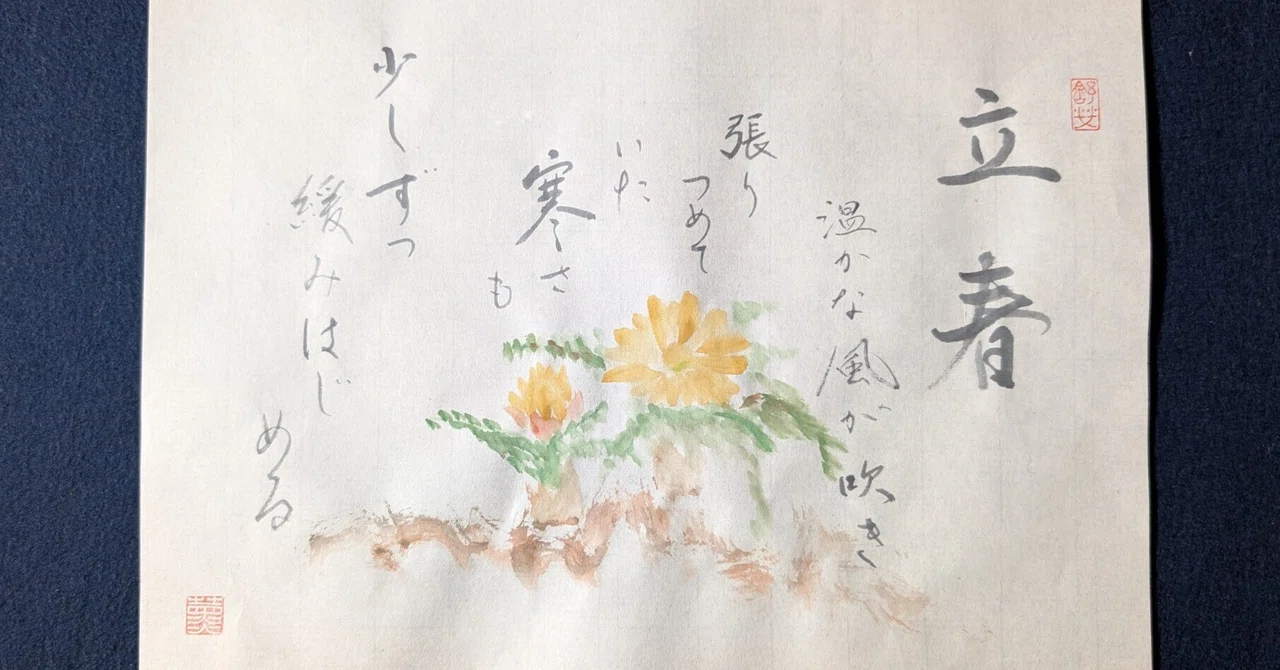 立春
温かな風が吹き
張り
つめて
いた
寒さ
も
少しずつ
緩みはじ
める